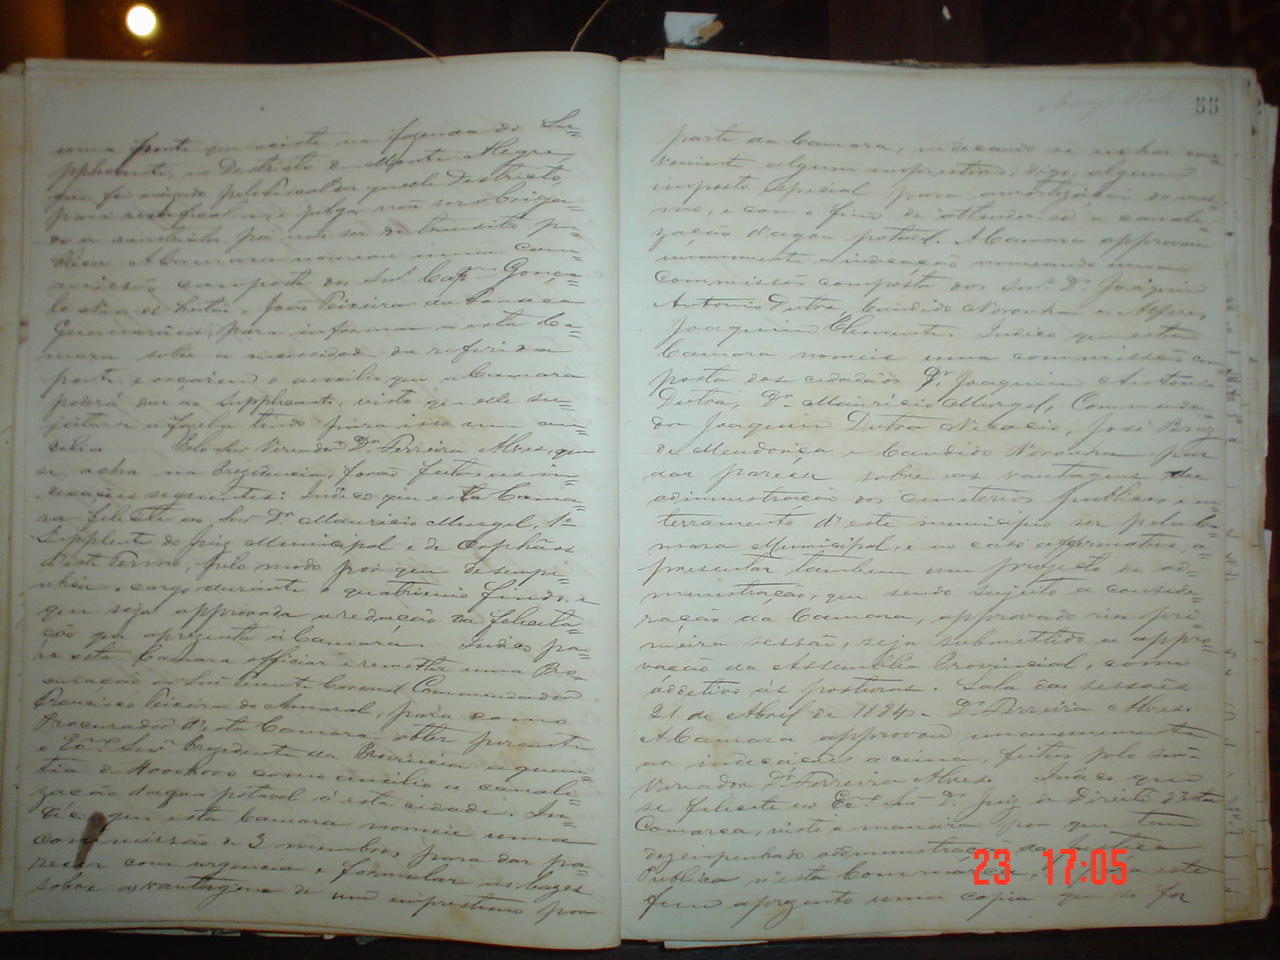 uma ponte que existe na fazenda do Su-
pplicante, no Destricto de Monte Alegre,
que foi exigido pelo Fiscal d'aquelle Destricto,
para reedifical-a, e julga não ser obriga-
do a construil-a por não ser de transito pu-
blico. A Camara nomeou uma com-
missão composta dos Snrs Capm Gonça-
lo João Pereira da Fonseca
Guimarães, para informar a esta Ca-
mara sobre a necessidade da referida
ponte e orçarem o auxilio que a Camara
poderá dar ao Supplicante, visto que elle su-
jeitase a fazel-a tendo para isso um au-
xilio. Pelo Snr Vereador Dr Ferreira Alves, que
se acha na Prezidencia, forão feitas as in-
dicações seguintes: Indico que esta Cama-
ra felicite ao Snr Dr Mauricio Murgel, 1º
Supplente do Juiz Municipal e de Orphãos
d'este Termo, pelo modo por que desempe-
nhou o cargo durante o quatriennio findo, e
que seja approvada a redacção da felicita-
ção que aprezenta á Camara. Indico pa-
ra esta Camara officiar e remetter uma Pro-
curação ao Snr Tenente Coronel Commendador
Francisco Teixeira do Amaral, para como
Procurador d'esta Camara obter perante
o Exmo Snr Prezidente da Provincia a quan-
tia de como auxilio a canali-
zação d'agua potavel á esta cidade. In-
dico que esta Camara nomeie uma
commissão de 3 membros, para dar pa-
recer com urgencia e formular as bazes
sobre as vantagens de um emprestimo por
55
parte da Camara, indicando se achar con-
veniente algum emprestimo, digo, algum
imposto especial para amortização do mes-
mo, e com o fim de attender-se a canali-
zação d'agua potavel. A Camara approvou
unanimente a indicação nomeando uma
Commissão composta dos Snrs Dr Joaquim
Antonio Dutra, Candido Noronha e Alferes
Joaquim Clemente. Indico que esta
Camara nomeie uma commissão com-
posta dos cidadãos Dr Joaquim Antonio
Dutra, Dr Mauricio Murgel, Commenda-
dor Joaquim Dutra Nicacio, José Braz
de Mendonça e Candido Noronha para
dar parecer sobre as vantagens da
administração dos cemiterios publicos e en-
terramento d'este municipio ser pela Ca-
mara Municipal, e no caso affirmativo, a-
prezentar tambem um projecto de ad-
ministração, que sendo sujeito a conside-
ração da Camara, approvado na pri-
meira sessão, seja submettido a appro-
vação da Assemblea Provincial, como
additivo ás posturas. Sala das sessões
21 de Abril de 1884. Dr Ferreira Alves.
A Camara approvou unanimemente
as indicações acima, feitas pelo Snr
Vereador Dr Ferreira Alves. Indico que
se felicite ao Exmo Snr Dr Juiz de Direito d'esta
Comarca, visto a maneira por que tem
dezempenhado a administração da Justiça
Publica n'esta Commarca, e para este
fim aprezento uma copia que se for
23 17:05